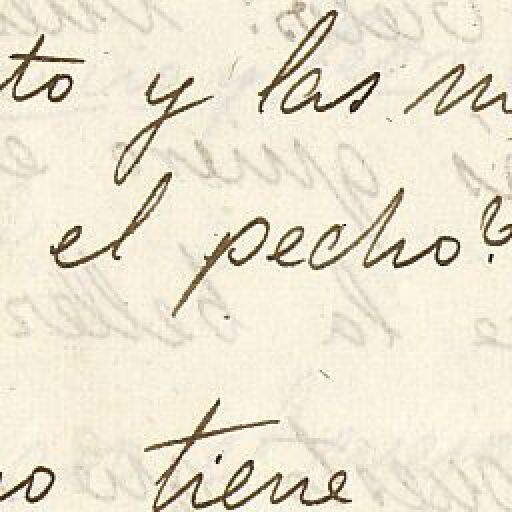 to y las m
el pecho?
no tiene